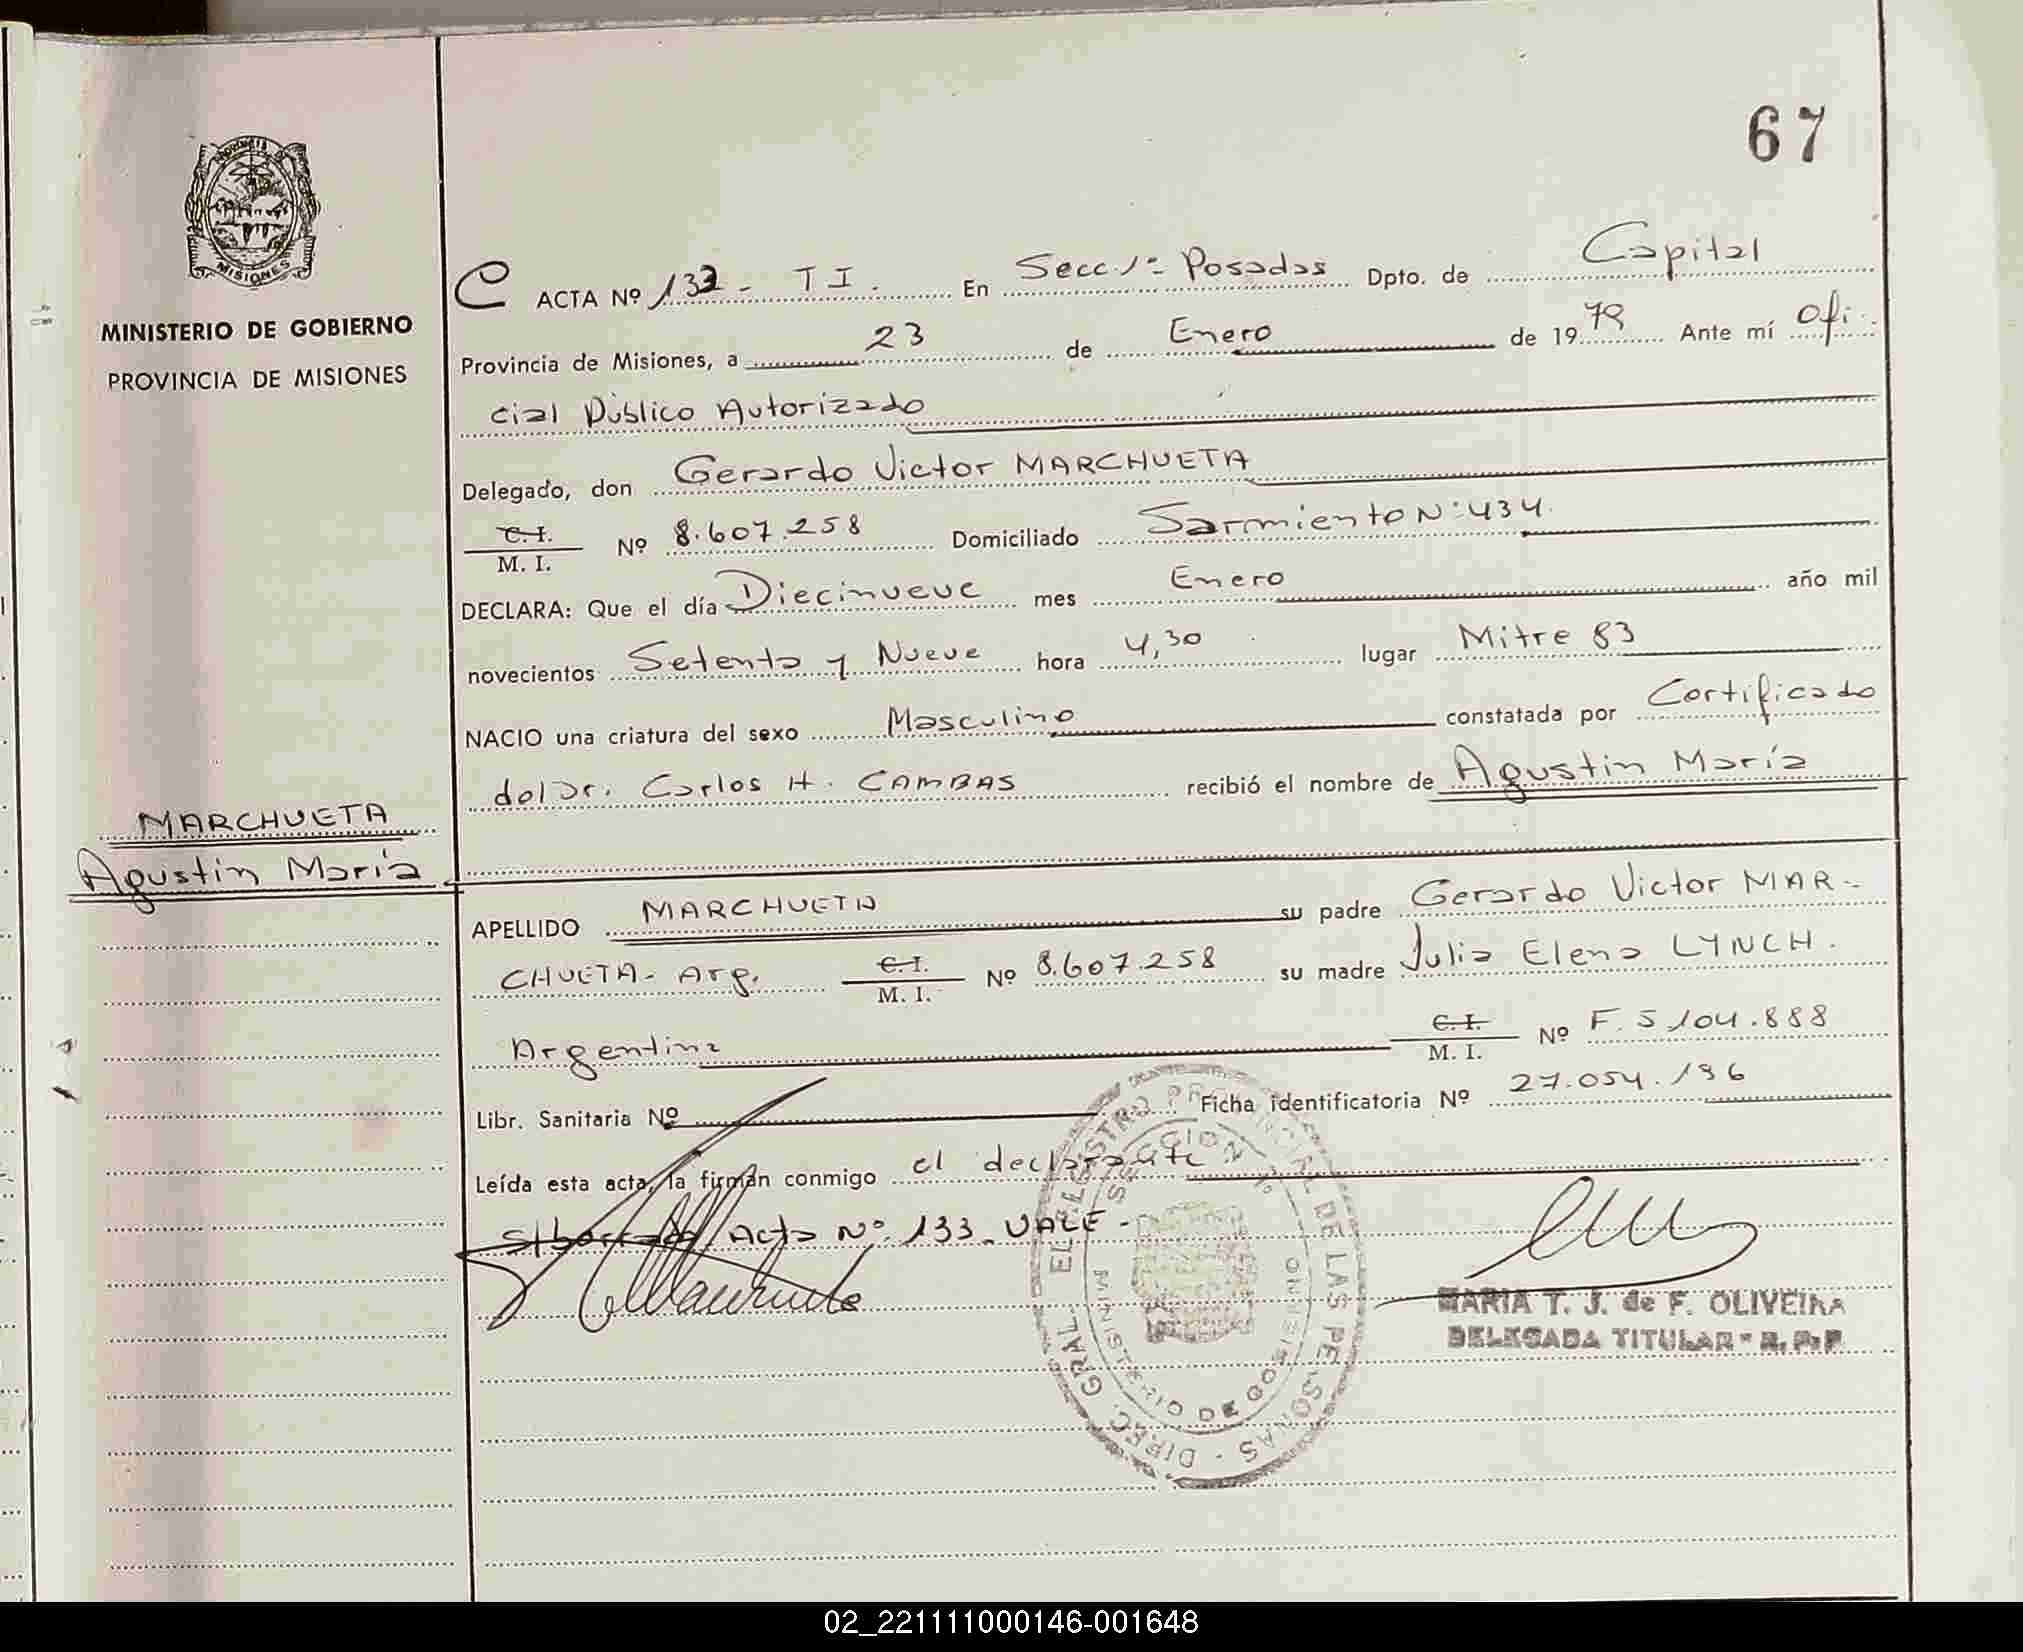 67
MINISTERIO DE GOBIERNO
PROVINCIA DE MISIONES
MISIONES
C ACTA Nº 133 - T I. En Secc. 1ª Posadas Dpto. de Capital
Provincia de Misiones, a 23 de Enero de 1979 Ante mí Ofi-
cial Público Autorizado
Delegado, don Gerardo Victor MARCHUETA
C. I. / M. I. Nº 8.607.258 Domiciliado Sarmiento Nº 434.
DECLARA: Que el día Diecinueve mes Enero año mil
novecientos Setenta y Nueve hora 4,30 lugar Mitre 83
NACIO una criatura del sexo Masculino constatada por Certificado
del Dr. Carlos H. CAMBAS recibió el nombre de Agustin María
MARCHUETA
Agustin María
APELLIDO MARCHUETA su padre Gerardo Victor MAR-
CHUETA - Arg. C. I. / M. I. Nº 8.607.258 su madre Julia Elena LYNCH.
Argentina C. I. / M. I. Nº F. 5104.888
Libr. Sanitaria Nº Ficha identificatoria Nº 27.054.196
Leída esta acta, la firman conmigo el declarante
S/borrado Acta Nº 133 VALE -
MARIA T. J. de F. OLIVEIRA
DELEGADA TITULAR - R. P. P.
DIREC. GRAL. DEL REGISTRO PROVINCIAL DE LAS PERSONAS
SECCION 1º
MINISTERIO DE GOBIERNO
02_221111000146-001648